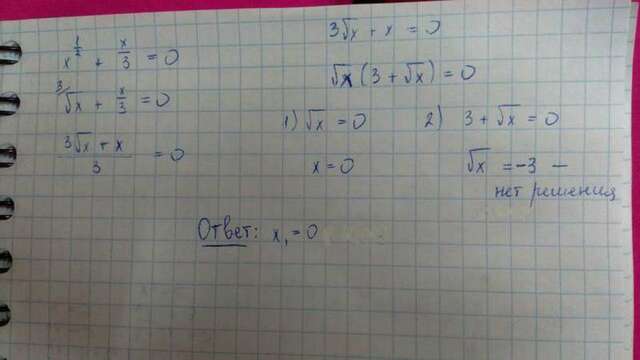 x^{1/2} + x/3 = 0
³√x + x/3 = 0
(3√x + x)/3 = 0
3√x + x = 0
√x (3 + √x) = 0
1) √x = 0
x = 0
2) 3 + √x = 0
√x = -3 –
нет решения
Ответ: x₁ = 0